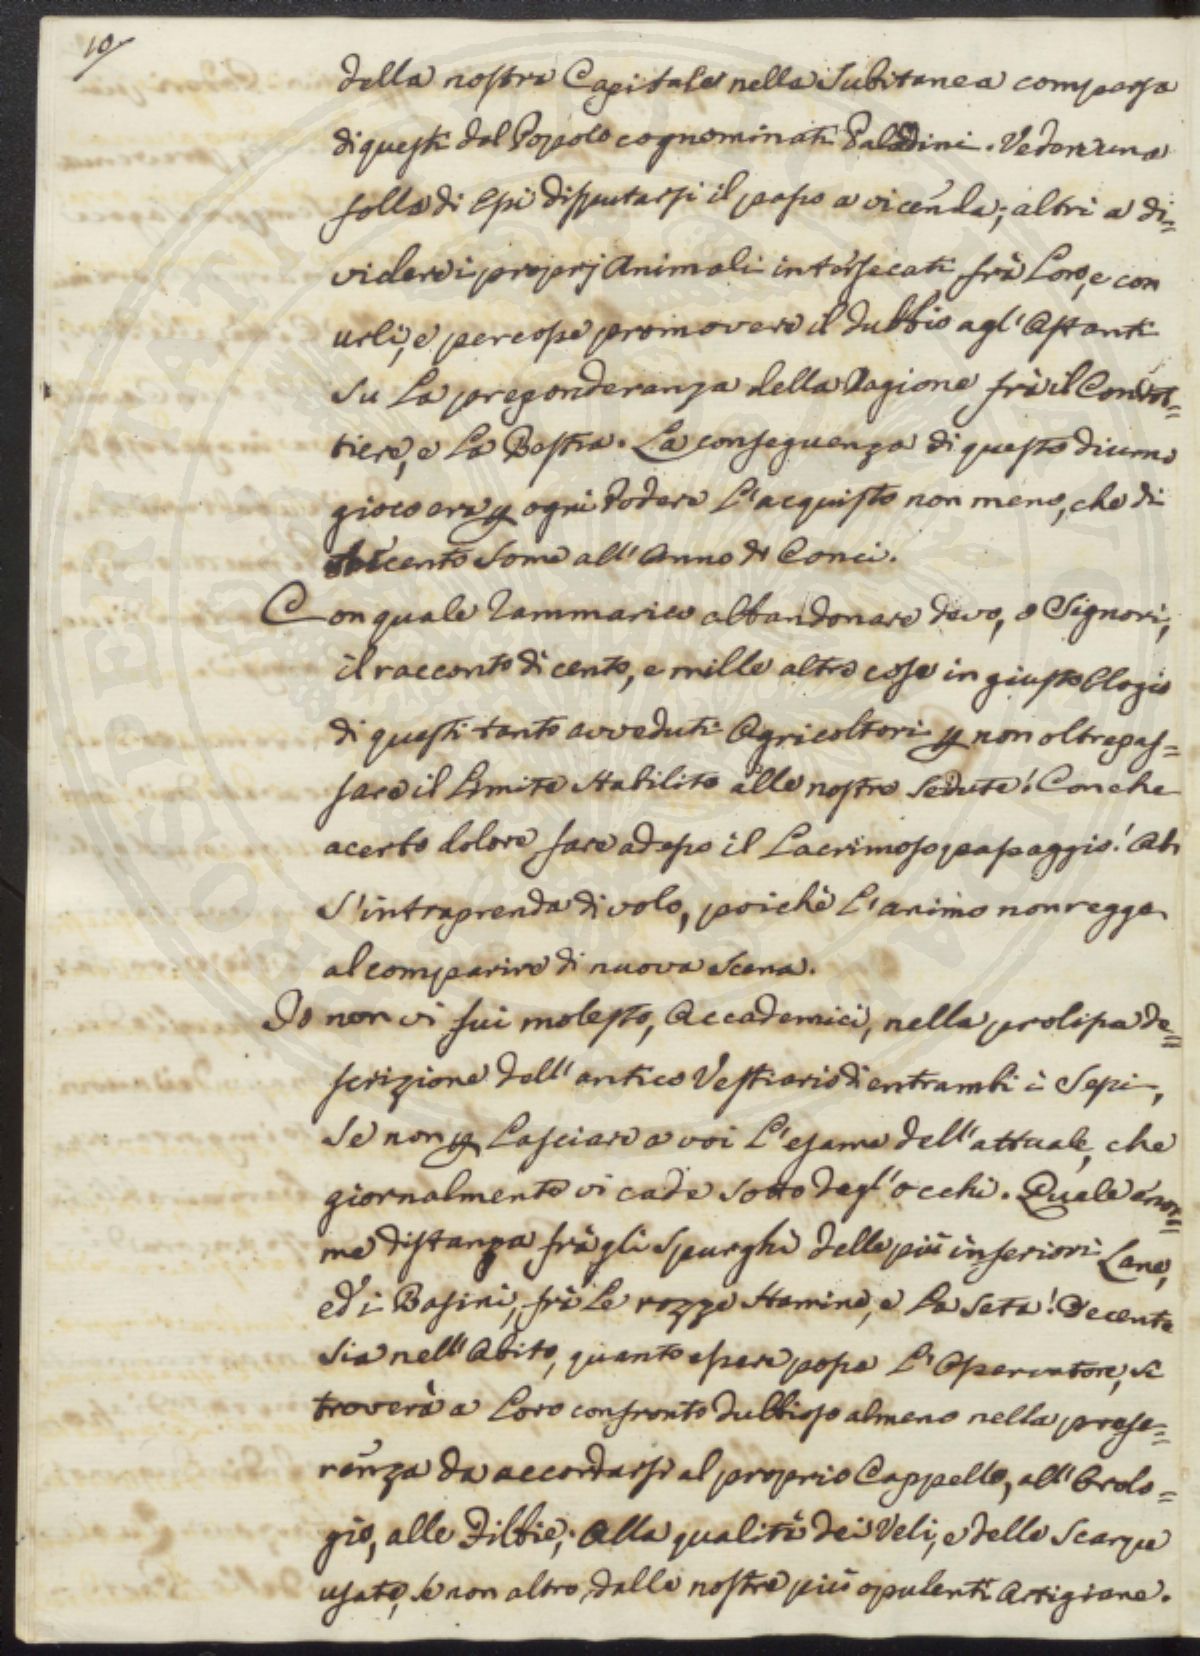 10
della nostra Capitale nella Subitanea comparsa
di questi dal Popolo cognominati Paladini. Vedere una
folla di Essi disputarsi il passo a vicenda; altri a di=
videre i proprj Animali intersecati frà Loro, e con
urli, e percosse promovere il dubbio agl' Astanti
su La preponderanza della Ragione frà il Condot=
tiere, e La Bestia. La conseguenza di questo diurno
gioco era ogni Podere L'acquisto non meno, che di
cento Some all' Anno di Conci.
Con quale Rammarico abbandonare devo, o Signori,
il racconto di cento, e mille altre cose in giusto Elogio
di questi tanto avveduti Agricoltori non oltrepas=
sare il Limite stabilito alle nostre Sedute! Con che
acerbo dolore fare adesso il Lacrimoso passaggio! Ah
S'intraprenda di volo, poichè L'animo non regge
al comparire di nuova Scena.
Io non vi fui molesto, Accademici, nella prolissa de=
scrizione dell' antico Vestiario di entrambi i Sessi,
Se non Lasciare a voi L'esame dell' attuale, che
giornalmente vi cade sotto degl' occhi. Quale enor=
me distanza frà gli Spurghi delle più inferiori Lane,
ed i Basini, frà Le rozze Stamine, e La Seta! Decente
sia nell' Abito, quanto essere possa L'Osservatore, si
troverà a Loro confronto dubbioso almeno nella prefe=
renza da accordarsi al proprio Cappello, all' Orolo=
gio, alle Fibbie; Alla qualità dei Veli, e delle Scarpe
usate, se non altro, dalle nostre più opulenti Artigiane.
PERITAT